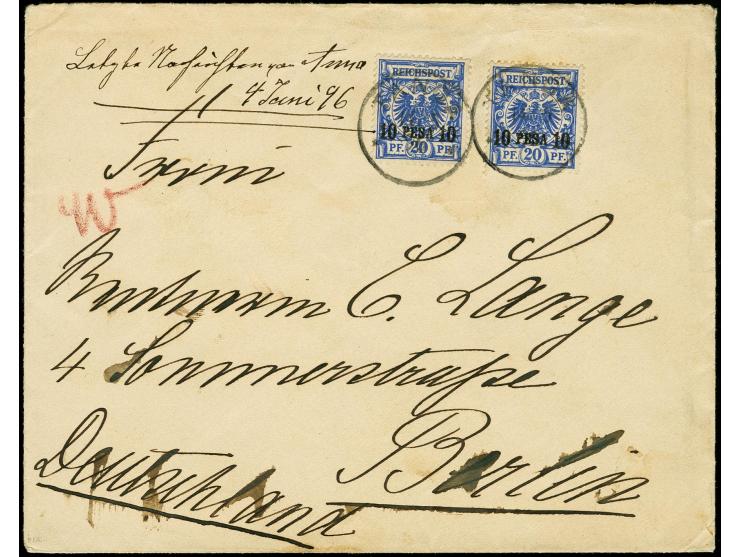 Letzte Nachrichten von Anna
4 Juni 96
REICHSPOST
10 PESA 10
PF. 20 PF.
REICHSPOST
10 PESA 10
PF. 20 PF.
W
C. Lange
4 Sommerstraße
Berlin
Deutschland